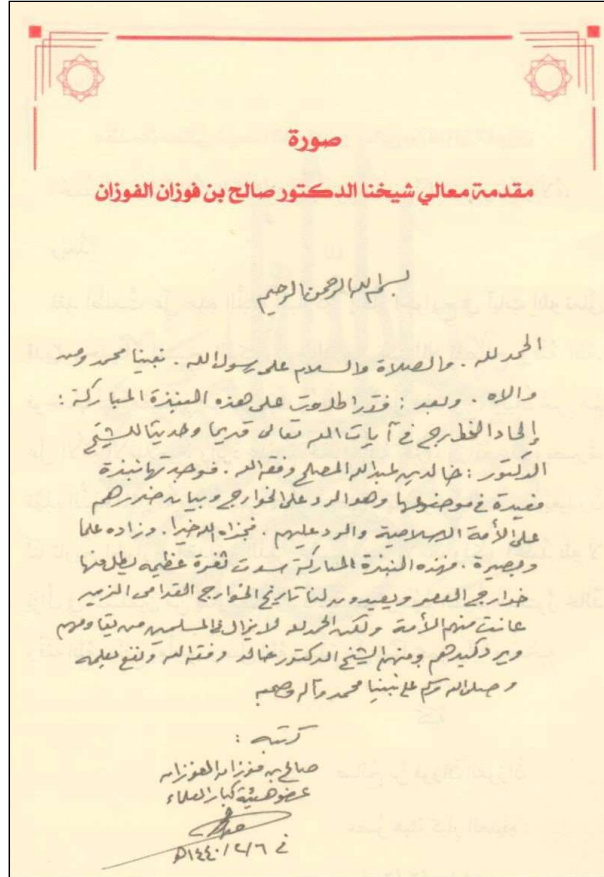 صورة
مقدمة معالي شيخنا الدكتور صالح بن فوزان الفوزان
بسم الله الرحمن الرحيم
الحمد لله . والصلاة والسلام على رسول الله . نبينا محمد ومن
والاه . وبعد : فقد اطلعت على هذه النبذة المباركة :
إلحاد الخوارج في آيات الله تعالى قديما وحديثا للشيخ
الدكتور : خالد بن عبدالله المصلح وفقه الله . فوجدتها نبذة
مفيدة في موضوعها وهو الرد على الخوارج وبيان ضررهم
على الأمة الاسلامية والرد عليهم . فجزاه الله خيرا . وزاده علما
وبصيرة . فهذه النبذة المباركة سدت ثغرة عظيمة يطل معها
خوارج العصر ويعيدون لنا تاريخ الخوارج القدامى الذين
عانت منهم الأمة ولكن الحمد لله لا يزال في المسلمين من يقاومهم
ويرد كيدهم ومنهم الشيخ الدكتور خالد وفقه الله ونفع بعلمه
وصلى الله وسلم على نبينا محمد وآله وصحبه
كتبه :
صالح بن فوزان الفوزان
عضو هيئة كبار العلماء
في ١٤٤٠/٢/٦هـ